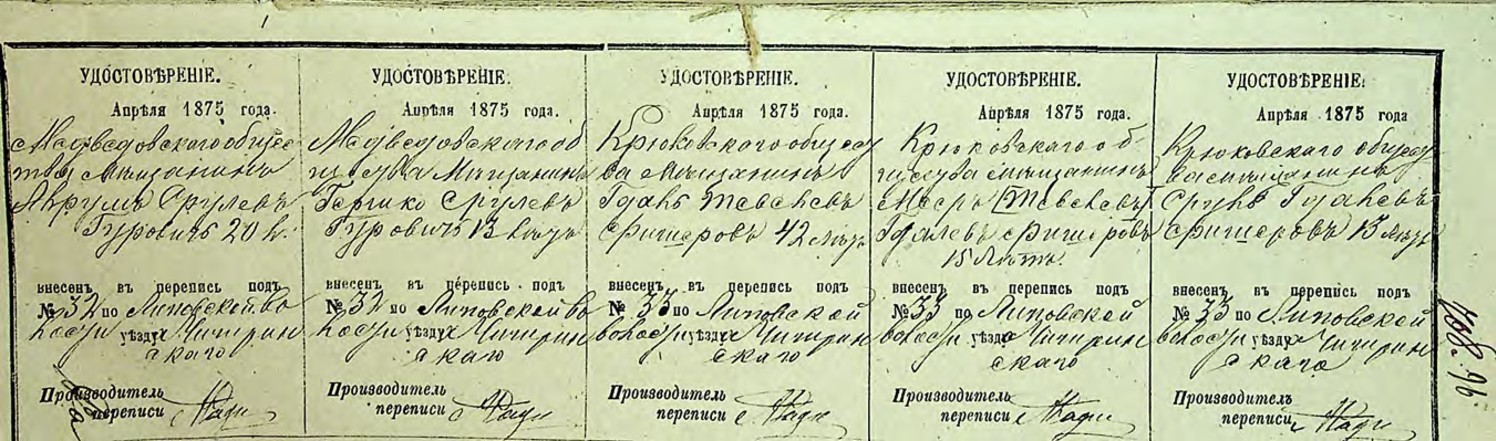 УДОСТОВѢРЕНІЕ.
Апрѣля 1875 года.
Медведовскаго общес
тва мѣщанинъ
Аврумъ Срулевъ
Гуровичъ 20 л.
внесенъ въ перепись подъ
№ 32 по Липовской во
лости уѣзда Чигирин
скаго
Производитель
переписи
УДОСТОВѢРЕНІЕ.
Апрѣля 1875 года.
Медведовскаго об
щества Мѣщанинъ
Срулевъ
Гуровичъ 13 лѣтъ
внесенъ въ перепись подъ
№ 32 по Липовской во
лости уѣзда Чигирин
скаго
Производитель
переписи
УДОСТОВѢРЕНІЕ.
Апрѣля 1875 года.
Крюковскаго общест
ва мѣщанинъ
Фишеровъ 42 лѣтъ
внесенъ въ перепись подъ
№ 33 по Липовской
волости уѣзда Чигирин
скаго
Производитель
переписи
УДОСТОВѢРЕНІЕ.
Апрѣля 1875 года.
Крюковскаго об
щества мѣщанинъ
Фишеровъ
15 лѣтъ.
внесенъ въ перепись подъ
№ 33 по Липовской
волости уѣзда Чигирин
скаго
Производитель
переписи
УДОСТОВѢРЕНІЕ.
Апрѣля 1875 года
Крюковскаго общест
ва мѣщанинъ
Фишеровъ 13 лѣтъ
внесенъ въ перепись подъ
№ 33 по Липовской
волости уѣзда Чигирин
скаго
Производитель
переписи